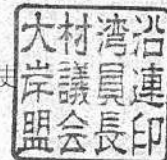 大村湾沿
岸議員連
盟会長印
史